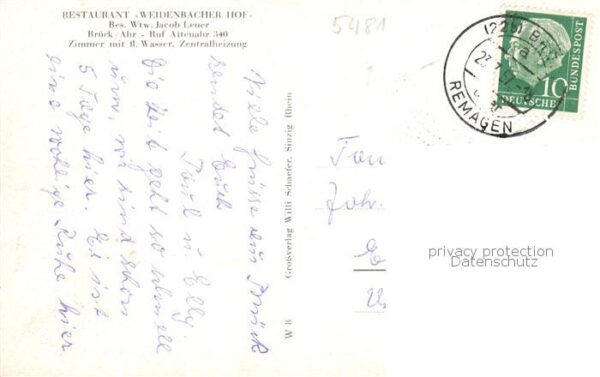 RESTAURANT »WEIDENBACHER HOF«
Bes. Wtw. Jacob Leuer
Brück/Ahr - Ruf Altenahr 340
Zimmer mit fl. Wasser, Zentralheizung
5481
Viele Grüsse aus Brück
sendet Euch
Paul u. Elly
Die Zeit geht so schnell
um, wir sind schon
5 Tage hier. Es ist
eine wohlige Ruhe hier
W 8 Großverlag Willi Schaefer, Sinzig Rhein
(22b)
REMAGEN
10
DEUTSCHE
BUNDESPOST
Joh.
privacy protection
Datenschutz